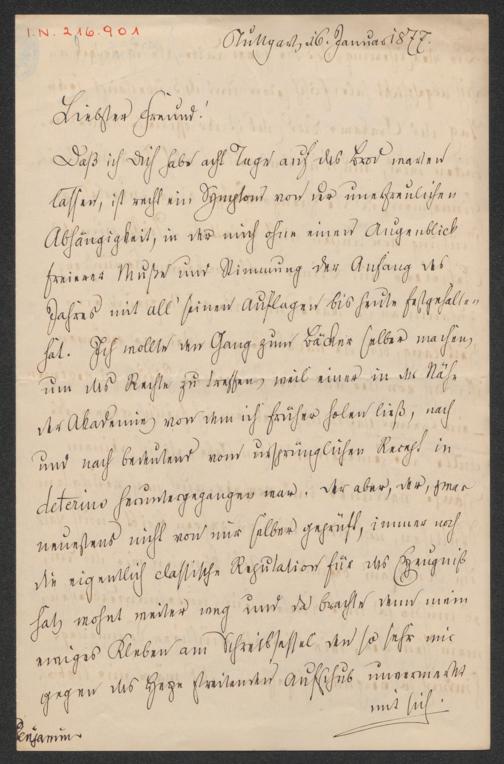 I.N. 216.901
Stuttgart, 16. Januar 1877.
Liebster Freund!
Daß ich Dich habe acht Tage auf das Brod warten
lassen, ist recht ein Symptom von der unerfreulichen
Abhängigkeit, in der mich ohne einen Augenblick
freierer Muße und Stimmung der Anfang des
Jahres mit all' seinen Auflagen bis heute festgehalten
hat. Ich wollte den Gang zum Bäcker selber machen,
um das Rechte zu treffen, weil einer in der Nähe
der Akademie, von dem ich früher holen ließ, nach
und nach bedeutend vom ursprünglichen Recept in
deterius heruntergegangen war. Der aber, der, zwar
neuestens nicht von mir selber geprüft, immer noch
die eigentlich classische Reputation für das Zeugniß
hat, wohnt weiter weg und da brachte denn mein
ewiges Kleben am Schreibsessel den so sehr mir
gegen das Herze streitenden Aufschub unvermerkt
mit sich.
Benjamin